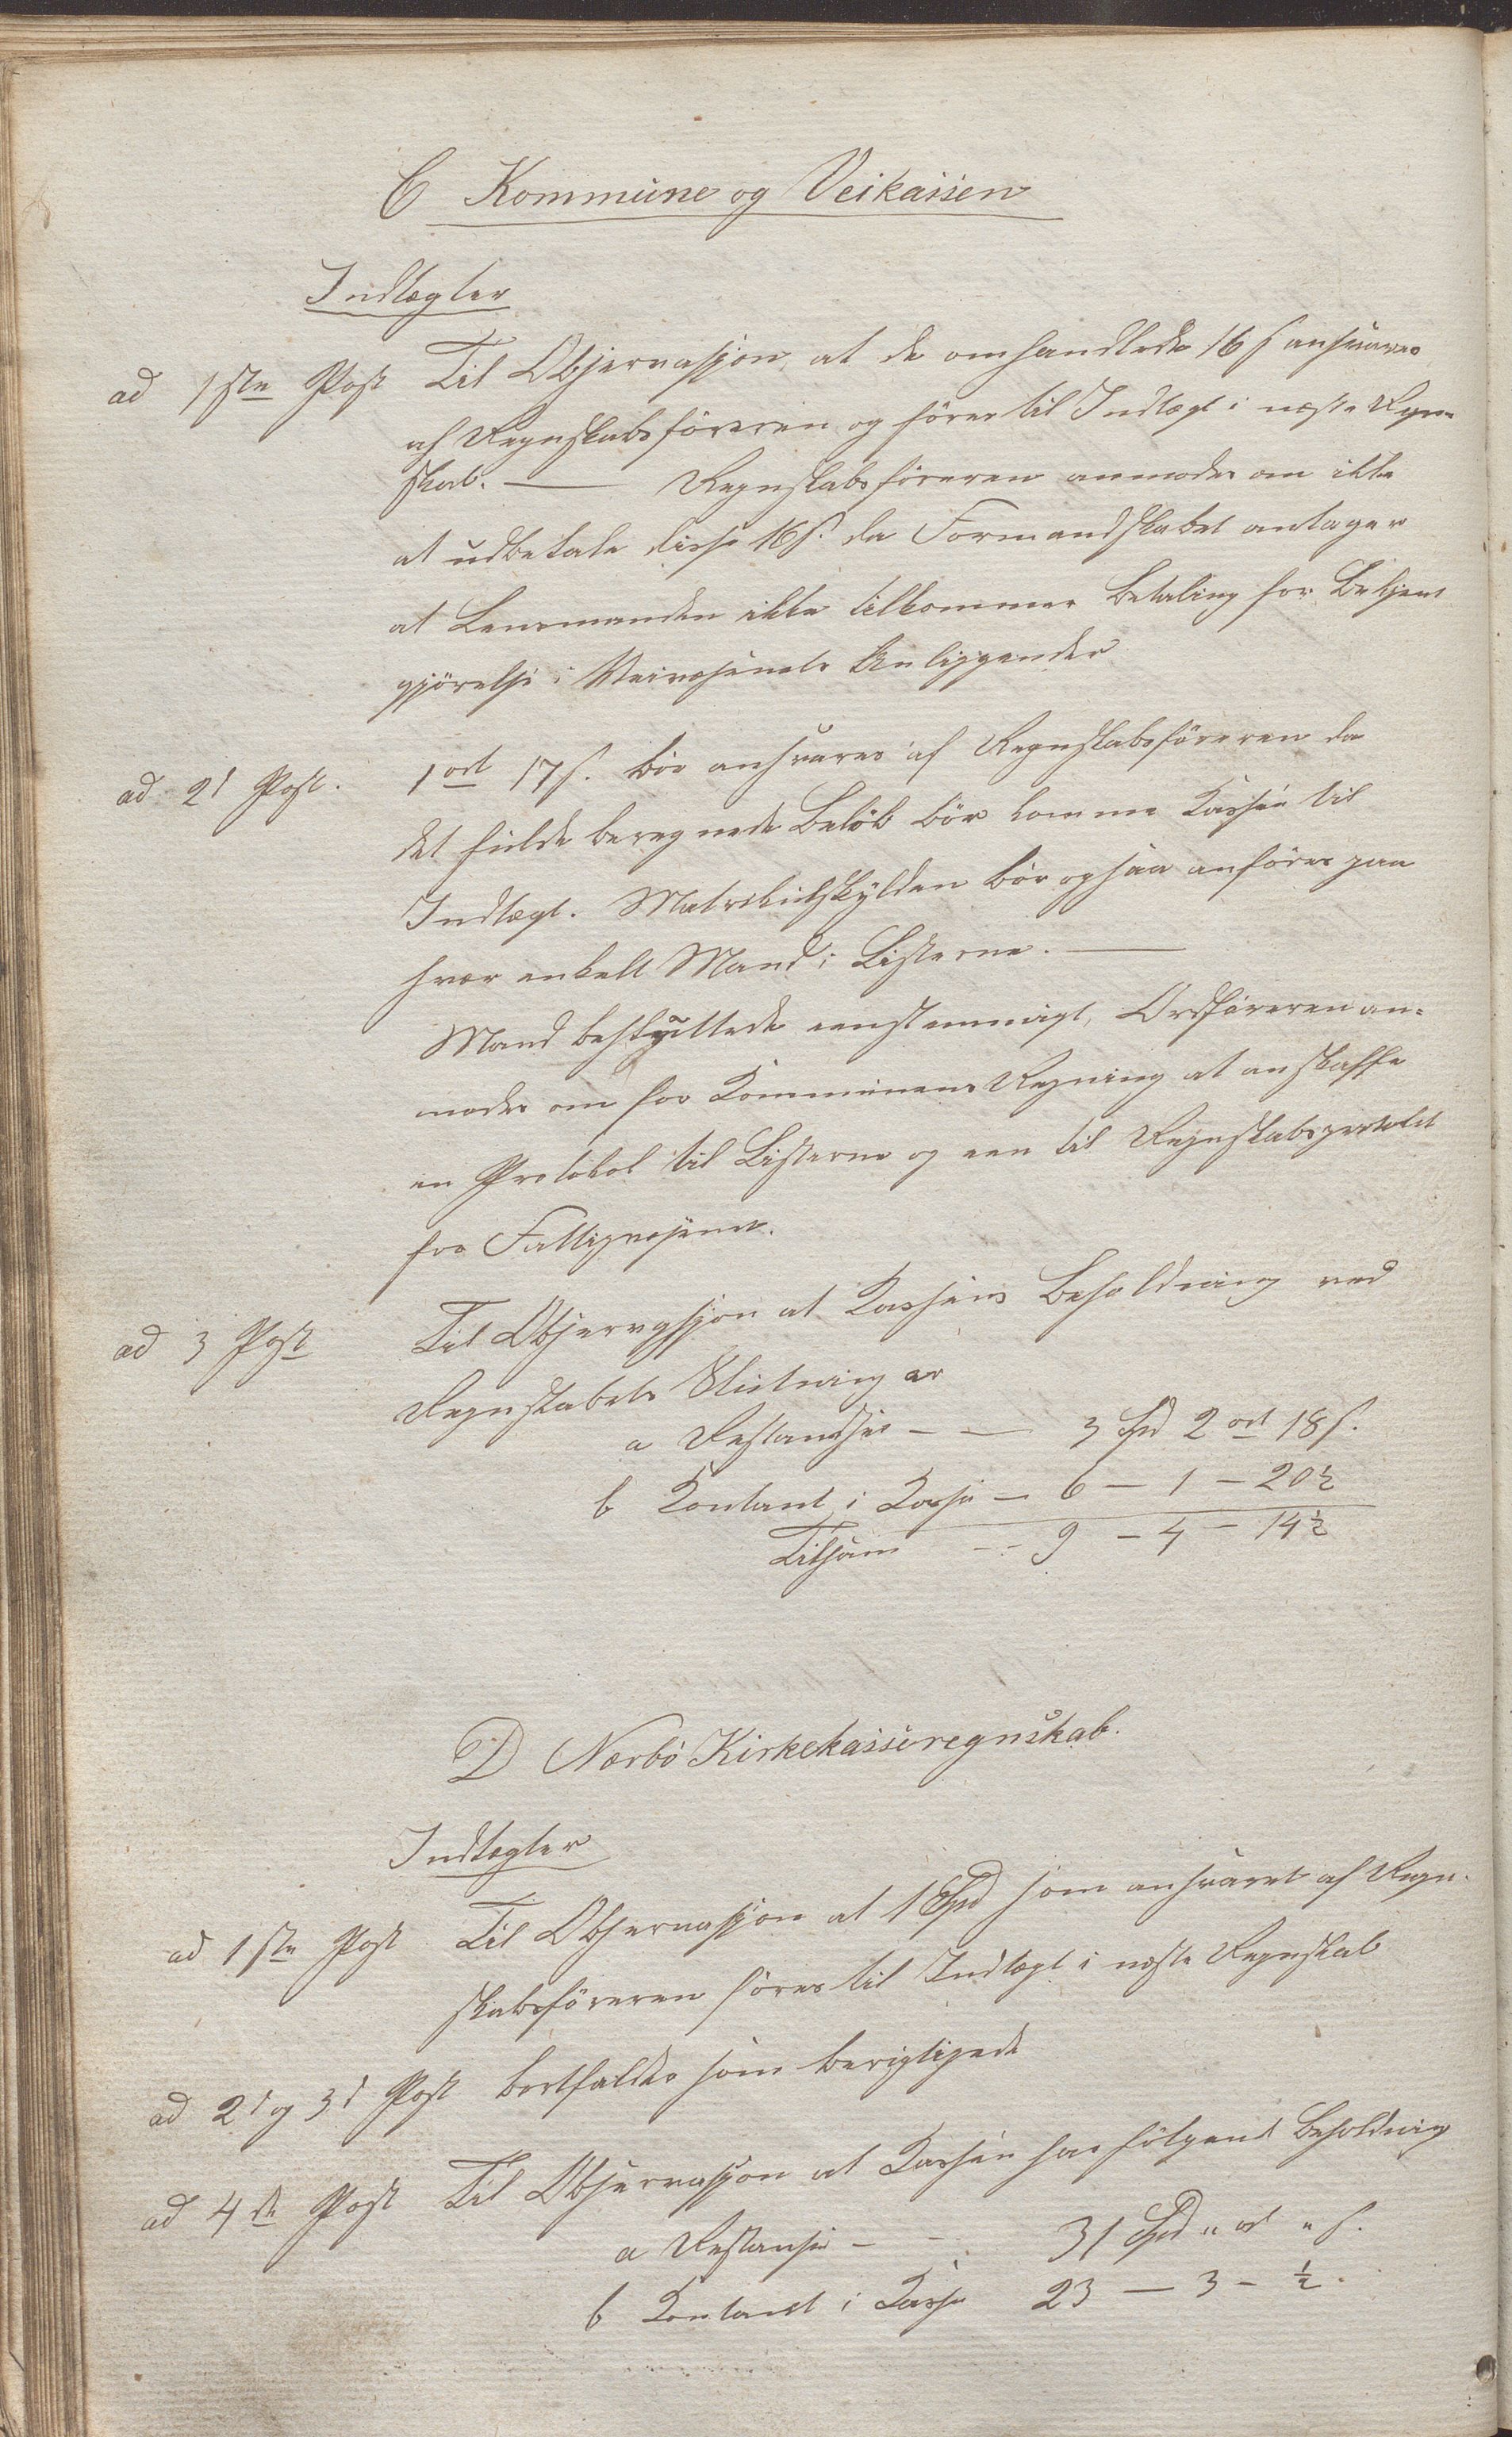 C Kommune og Veikassen
Indtægter
ad 1ste Post Til Observasjon, at de omhandlede 16 s ansvares
af Regnskabsföreren og föres til Indtægt i næste Regn-
skab. — Regnskabsföreren anmodes om ikke
at udbetale disse 16 s. da Formandskabet antager
at Lensmanden ikke tilkommer Betaling for Bekjent
gjörelse i Veivæsenets Anliggender
ad 2d Post. 1 ort 17 s. bör ansvares af Regnskabsföreren da
det fulde beregnede Belöb bör komme Kassen til
Indtægt. Matrikulskylden bör ogsaa anföres paa
hver enkelt Mand i Listerne. —
Mand besluttede eenstemmigt, Ordföreren an-
modes om for Kommunens Regning at anskaffe
en Protokol til Listerne og een til Regnskabsprotokol
for Fattigvæsenet.
ad 3 Post Til Observasjon at Kassens Beholdning ved
Regnskabets Slutning er
a Restandser - — 3 Spd 2 ort 18 s.
b Contant i Kasse — 6 - 1 - 20½
Tilsam -- 9 - 4 - 14½
D Nærbö Kirkekasseregnskab.
Indtægter
ad 1ste Post Til Observasjon at 1 Spd som ansvaret af Regn-
skabsföreren föres til Indtægt i næste Regnskab
ad 2d og 3d Post bortfaldes som berigtigede
ad 4de Post Til Observasjon at Kassen har fölgende Beholdning
a Restanse - - 31 Spd " ort " s.
b Contant i Kasse 23 — 3 - ½.